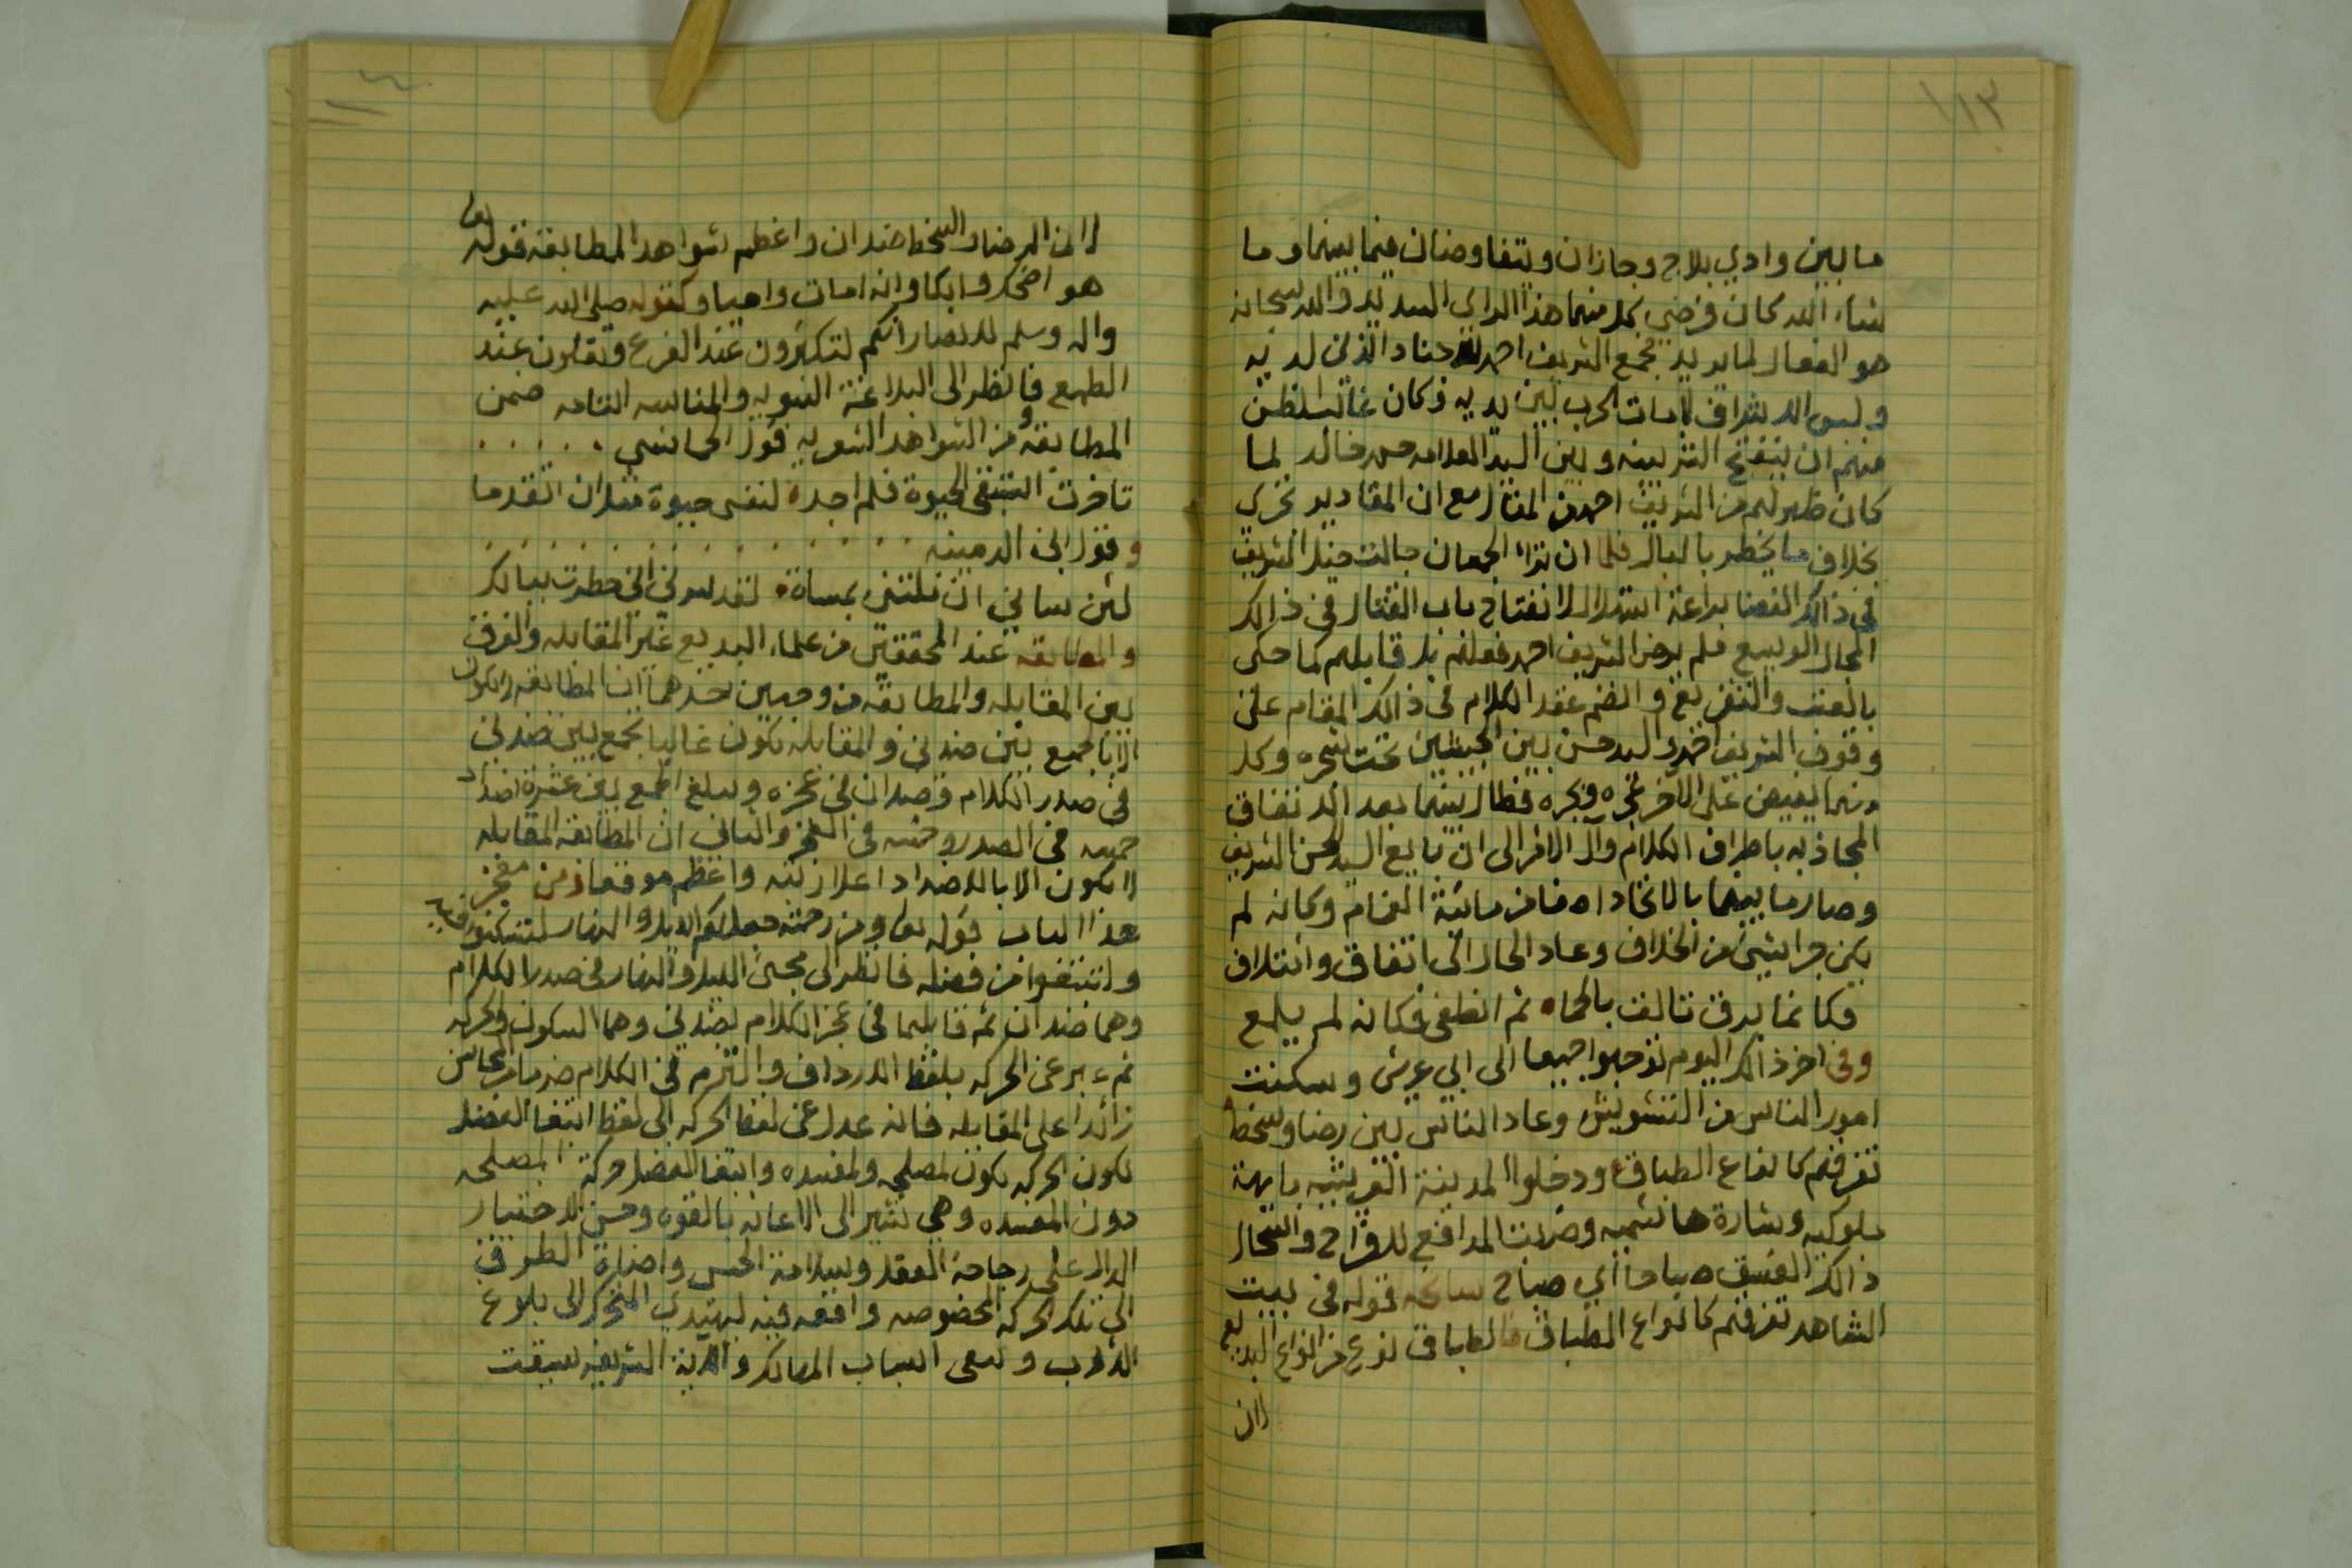 ١١٣
ما بين وادي بلاج وجازان ويتفاوضان فيما بينهما وما
شاء الله كان فرضي كل منهما هذا الراي السديد والله سبحانه
هو الفعال لما يريد فجمع الشريف احمد جنادا الذي لديه
ولبس الاشراف لامات الحرب بين يديه وكان غالب الظن
منهم ان ينفتح الشر بينه وبين السيد العلامه حسن خالد لما
كان ظهر لهم من الشريف احمد من المقال مع ان المقادير تجري
بخلاف ما يخطر بالبال فلما ان تراء الجمعان جالت خيل الشريف
في ذالك الفضا براعة استهلال لانفتاح باب القتال في ذالك
المجال الوسيع فلم يرض الشريف احمد فعلهم بل قابلهم كما حكي
بالعنف والتقريع وانضم عقد الكلام في ذالك المقام على
وقوف الشريف احمد والسيد حسن بين الجيشين تحت شجره وكل
منهما يفيض على الاخر عجره وبجره فطال بينهما بعد الاتفاق
المجاذبه باطراف الكلام وآل الامر الى ان بايع السيد الحسن الشريف
وصار ما بينهما بالاتحاد اصفا من مائة الغمام وكانه لم
يكن جرا شيئ من الخلاف وعاد الحال الى اتفاق وائتلاف
فكانما برق تالف بالحماه ثم انطفى فكانه لم يلمع
وفي اخر ذالك اليوم توجهوا جميعا الى ابي عريش وسكنت
امور الناس من التشويش وعاد الناس بين رضا وسخط
تفرقهم كانواع الطباق ودخلوا المدينة العريشيه بابهة
ملوكيه وشارة هاشميه وضربت المدافع للافراح واستحال
ذالك الغسق صباحا أي صباح سانحه قوله في بيت
الشاهد تفرقهم كانواع الطباق فالطباق نوع من انواع البديع
لان
١١٤
لان الرضا والسخط ضدان واعظم شواهد المطابقة قوله تعا
هو اضحك وابكا وانه امات واحيا وكقوله صلى الله عليه
واله وسلم للانصار انكم لتكثرون عند الفزع وتقلون عند
الطمع فانظر الى البلاغة النبويه والمناسبه التامه ضمن
المطابقة ومن الشواهد الشعريه قول الحماسي . . . . .
تاخرت استبقي الحيوة فلم اجد لنفسي حيوة مثل ان اتقدما
وقول ابن الدمينه . . . . . . . . . .
لئن ساني ان نلتني بمساة لقد سرني اني خطرت ببالك
والمطابقه عند المحققين من علماء البديع غير المقابله والفرق
بين المقابله والمطابقة من وجهين احدهما ان المطابقة لا تكون
الا بالجمع بين ضدين والمقابله تكون غالبا بجمع بين ضدين
في صدر الكلام وضدان في عجزه ويبلغ الجمع بين عشرة اضداد
خمسه في الصدر وخمسه في العجز والثاني ان المطابقة المقابله
لا يكون الا بالاضداد اعلا رتبه واعظم موقعا ومن معجز
هذا الباب قوله تعا ومن رحمته جعل لكم الليل والنهار لتسكنوا فيه
ولتبتغوا من فضله فانظر الى مجئ الليل والنهار في صدر الكلام
وهما ضدان ثم قابلهما في عجز الكلام بضدين وهما السكون والحركه
ثم عبر عن الحركه بلفظ الارداف والتزم في الكلام ضربا من المحاسن
زائدا على المقابله فانه عدل عن لفظ الحركه الى لفظ ابتغا الفضل
لكون الحركه تكون لمصلحه ولمفسده وابتغا الفضل حركة المصلحه
دون المفسده وهي تشير الى الاعانه بالقوه وحسن الاختيار
الدال على رجاحة العقل وسلامة الحس واضاءة الطرف
الى تلك الحركه المخصوصه واقعه فيه ليهتدي المتحرك الى بلوغ
المارب ويتقي اسباب المهالك والاية الشريفه سيقت